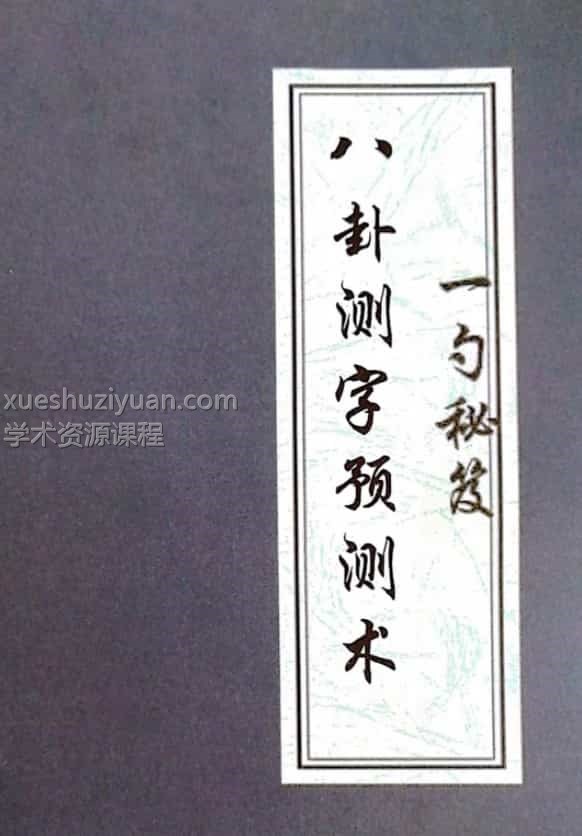 一勺秘笈
八卦测字预测术
xueshuziyuan.com
学术资源课程